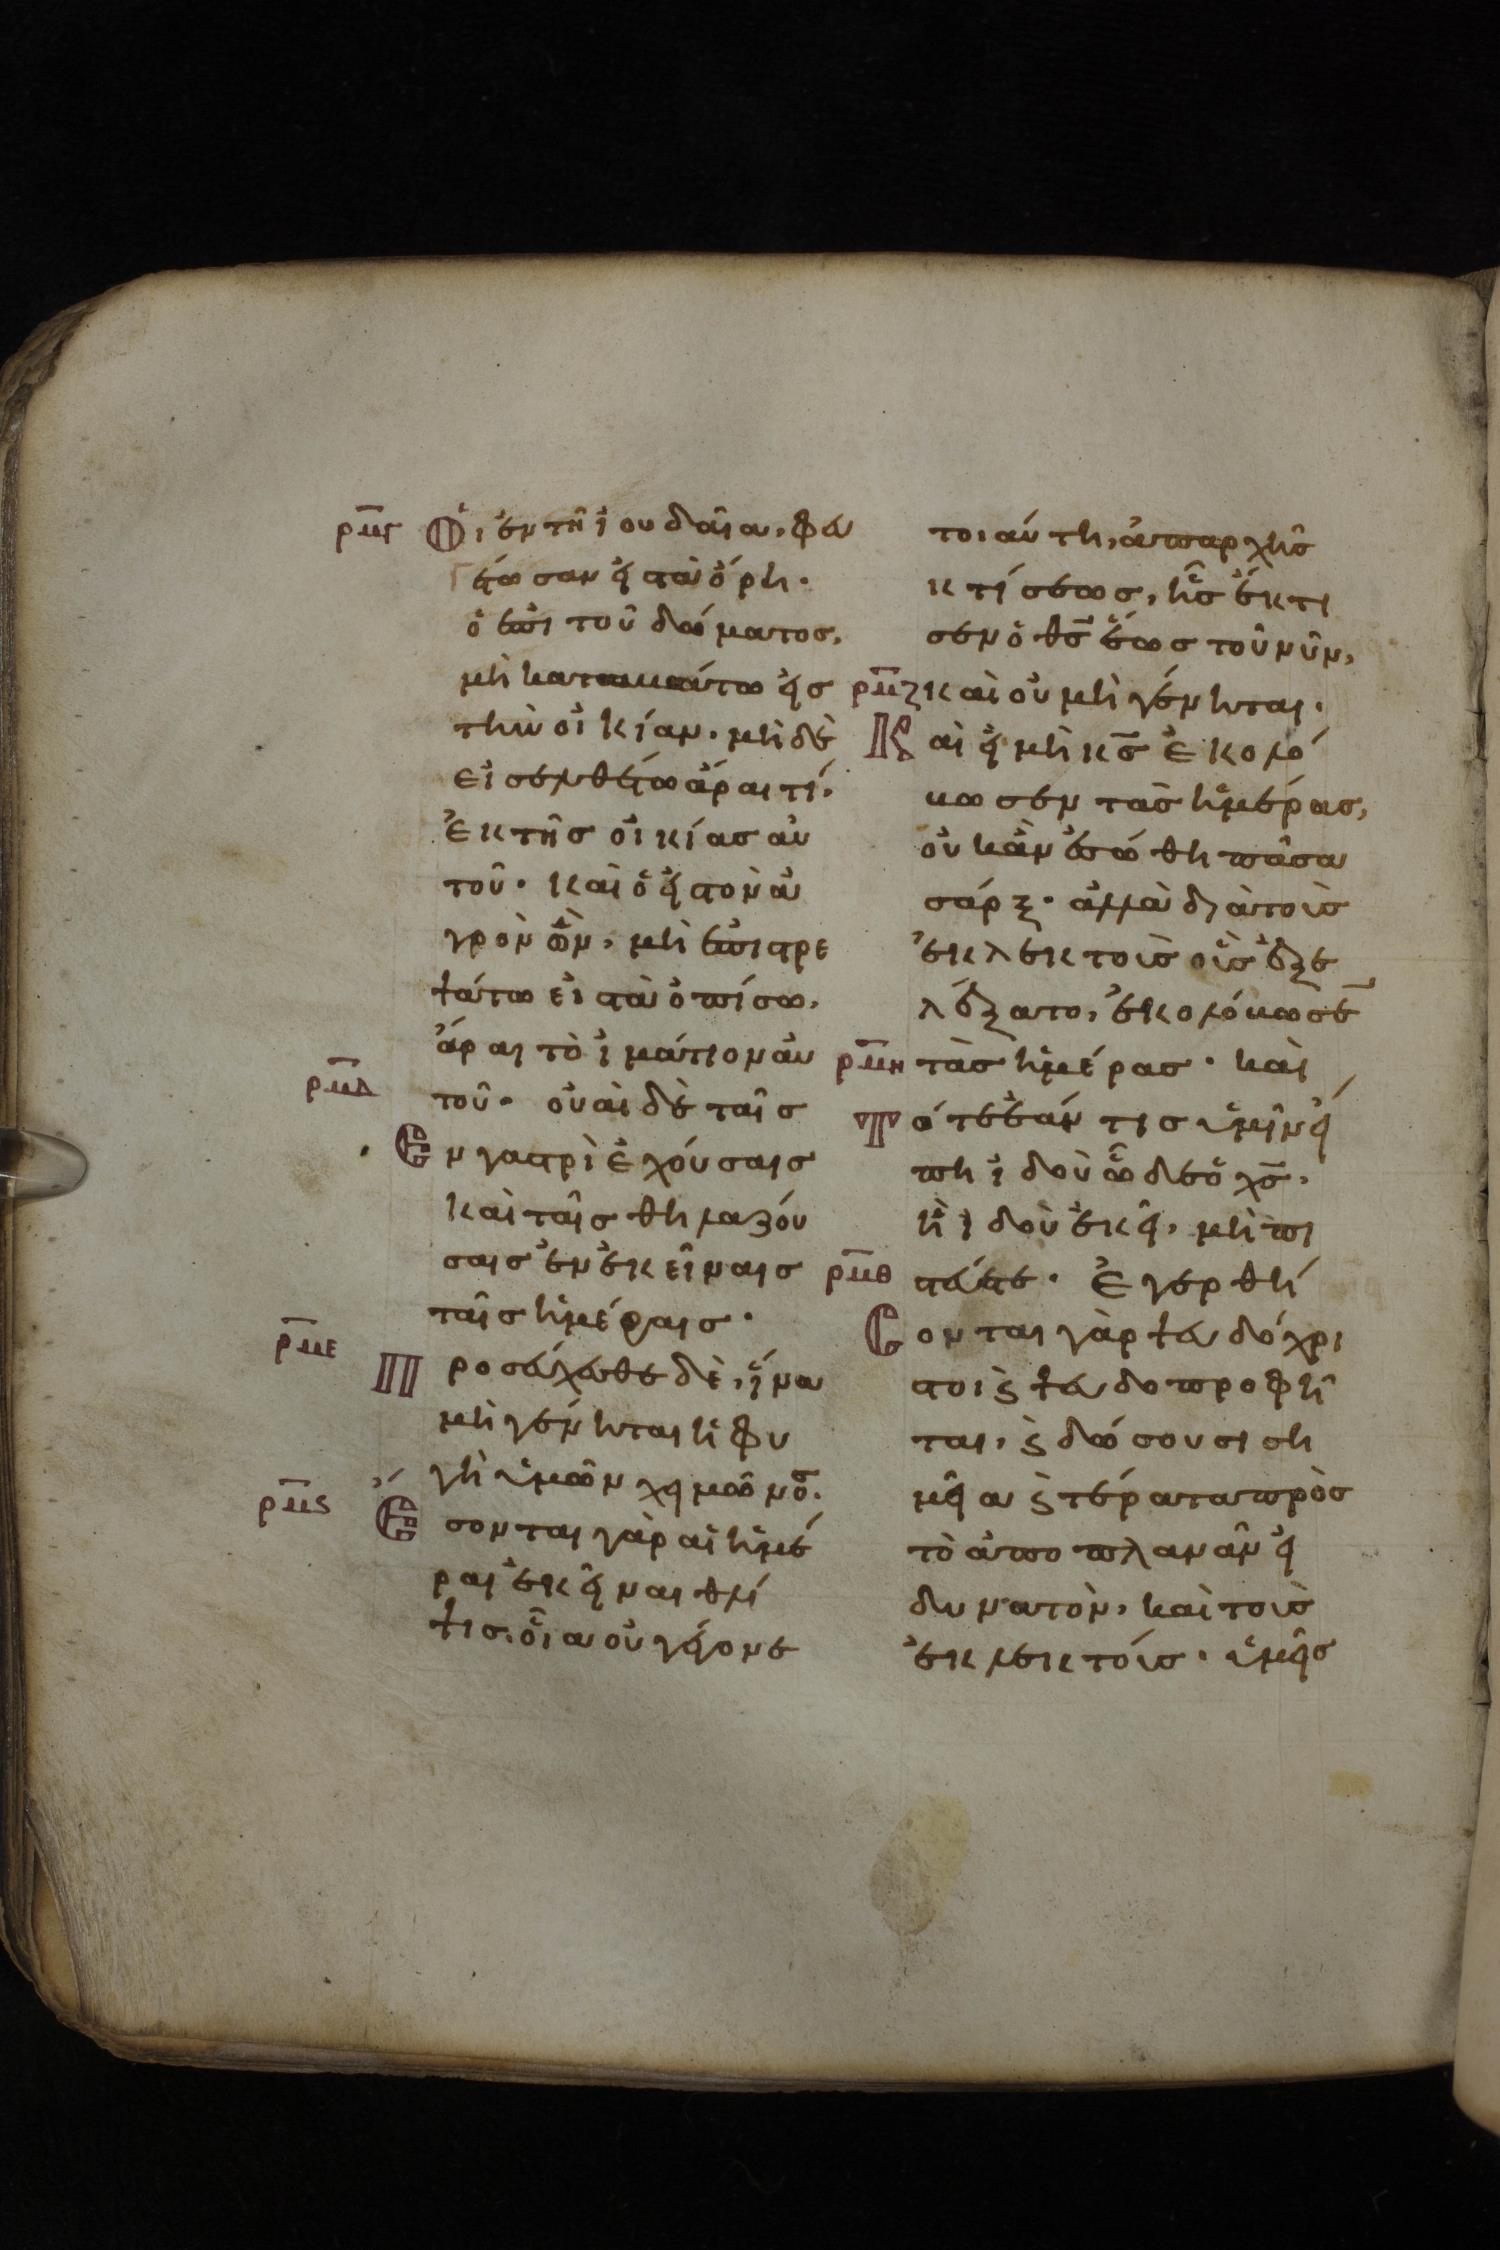 ρμγ Οἱ ἐν τῆ ἰουδαία, φευ
γέτωσαν εἰς τὰ ὄρη·
ὁ ἐπὶ τοῦ δώματος,
μὴ καταβάτω εἰς
τὴν οἰκίαν. μὴ δὲ
εἰσελθέτω ἆραι τί,
ἐκ τῆς οἰκίας αὐ
τοῦ· καὶ ὁ εἰς τὸν ἀ
γρὸν ὢν, μὴ ἐπιστρε
ψάτω εἰς τὰ ὀπίσω,
ἆραι τὸ ἱμάτιον αὐ
ρμδ τοῦ· οὐαὶ δὲ ταῖς
Ἐν γαστρὶ ἐχούσαις
καὶ ταῖς θηλαζού
σαις ἐν ἐκείναις
ταῖς ἡμέραις·
ρμε Προσεύχεσθε δὲ, ἵνα
μὴ γένηται ἡ φυ
γὴ ὑμῶν χειμῶνος.
ρμς Ἔσονται γὰρ αἱ ἡμέ
ραι ἐκεῖναι θλί
ψις, οἵα οὐ γέγονε
τοιαύτη, ἀπαρχῆς
κτίσεως, ἧς ἔκτι
σεν ὁ θς ἕως τοῦ νῦν,
ρμζ καὶ οὐ μὴ γένηται.
Καὶ εἰ μὴ κς ἐκολό
βωσεν τὰς ἡμέρας,
οὐκ ἂν ἐσώθη πᾶσα
σάρξ· ἀλλὰ διὰ τοὺς
ἐκλεκτοὺς οὓς ἐξε
λέξατο, ἐκολόβωσε
ρμη τὰς ἡμέρας· καὶ
Τότε ἐάν τις ὑμῖν εἴ
πη ἰδοὺ ὧδε ὁ χς,
ἢ ἰδοὺ ἐκεῖ, μὴ πι
ρμθ στεύετε· Ἐγερθή
Σονται γὰρ ψευδόχρι
στοι ϛ ψευδοπροφῆ
ται, ϛ δώσουσι ση
μεῖα ϛ τέρατα πρὸς
τὸ ἀποπλανᾶν εἰ
δυνατὸν, καὶ τοὺς
ἐκλεκτούς· ὑμεῖς